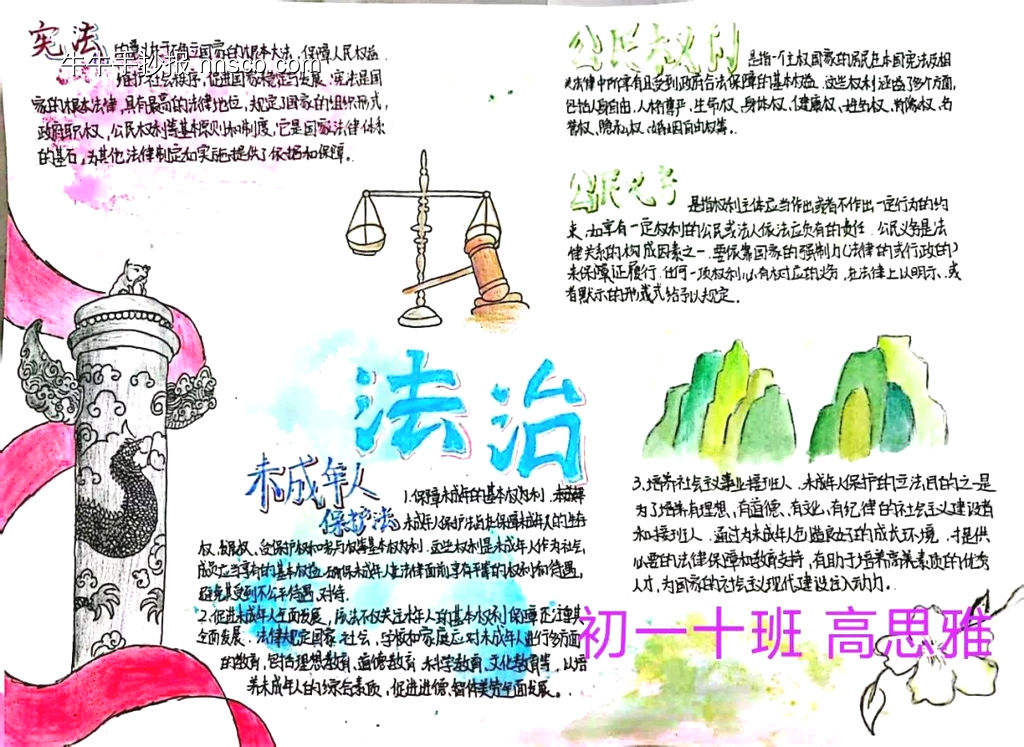 宪法
的尊严在于确立国家的根本大法,保障人民权益
牛牛手抄报 www.nnscb.com
维护社会秩序,促进国家稳定与发展.宪法是国
家的根本法律,具有最高的法律地位,规定了国家的组织形式,
政府职权、公民权利等基本原则和制度.它是国家法律体系
的基石,为其他法律制定和实施提供了依据和保障.
公民权利
是指一个主权国家的居民在本国宪法及相
关法律中所享有且受到政府合法保障的基本权益.这些权利涵盖了多方面,
包括人身自由、人格尊严、生命权、身体权、健康权、姓名权、肖像权、名
誉权、隐私权、婚姻自由权等.
公民义务
是指权利主体应当作出或者不作出一定行为的约
束,如享有一定权利的公民或法人依法应负有的责任.公民义务是法
律关系的构成因素之一.要依靠国家的强制力(法律的或行政的)
来保障证履行.任何一项权利必有相对应的义务,在法律上以明示、或
者默示的形式给予以规定.
法治
未成年人
保护法
1.保障未成年的基本权利.未成年
未成年人保护法旨在保障未成年人的生存
权、发展权、受保护权和参与权等基本权利.这些权利是未成年人作为社会
成员应当享有的基本权益.确保未成年人在法律面前享有平等的权利和待遇,
避免其受到不公平待遇、对待.
2.促进未成年人全面发展,该法不仅关注未成年人的基本权利保障还注重其
全面发展.法律规定国家、社会、学校和家庭应对未成年人进行多方面
的教育,包括理想教育、道德教育、科学教育、文化教育等.以培
养未成年人的综合素质,促进进德、智体美劳全面发展.
3.培养社会主义事业接班人.未成年人保护的立法目的之一是
为了培养有理想、有道德、有文化、有纪律的社会主义建设者
和接班人.通过为未成年人创造良好的成长环境.提供
必要的法律保障和教育支持,有助于培养高素质的优秀
人才,为国家的社会主义现代建设注入动力.
初一十班 高思雅